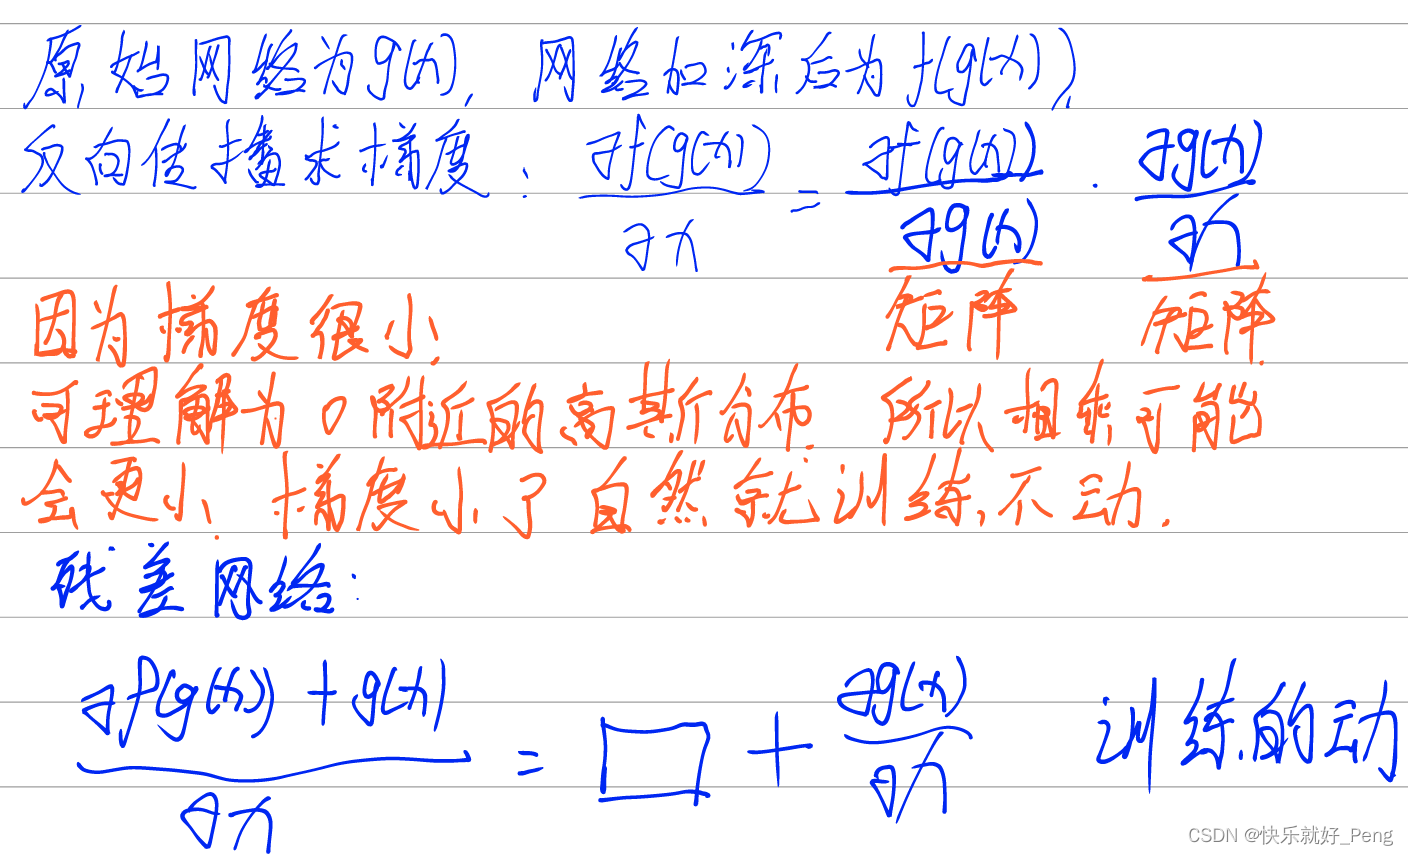 原始网络为g(x), 网络加深后为f(g(x)),
反向传播求梯度: ∂f(g(x))/∂x = ∂f(g(x))/∂g(x) · ∂g(x)/∂x
矩阵 矩阵
因为梯度很小,
可理解为0附近的高斯分布, 所以相乘可能
会更小, 梯度小了自然就训练不动.
残差网络:
∂f(g(x))+g(x)/∂x = □ + ∂g(x)/∂x 训练的动
CSDN @快乐就好_Peng